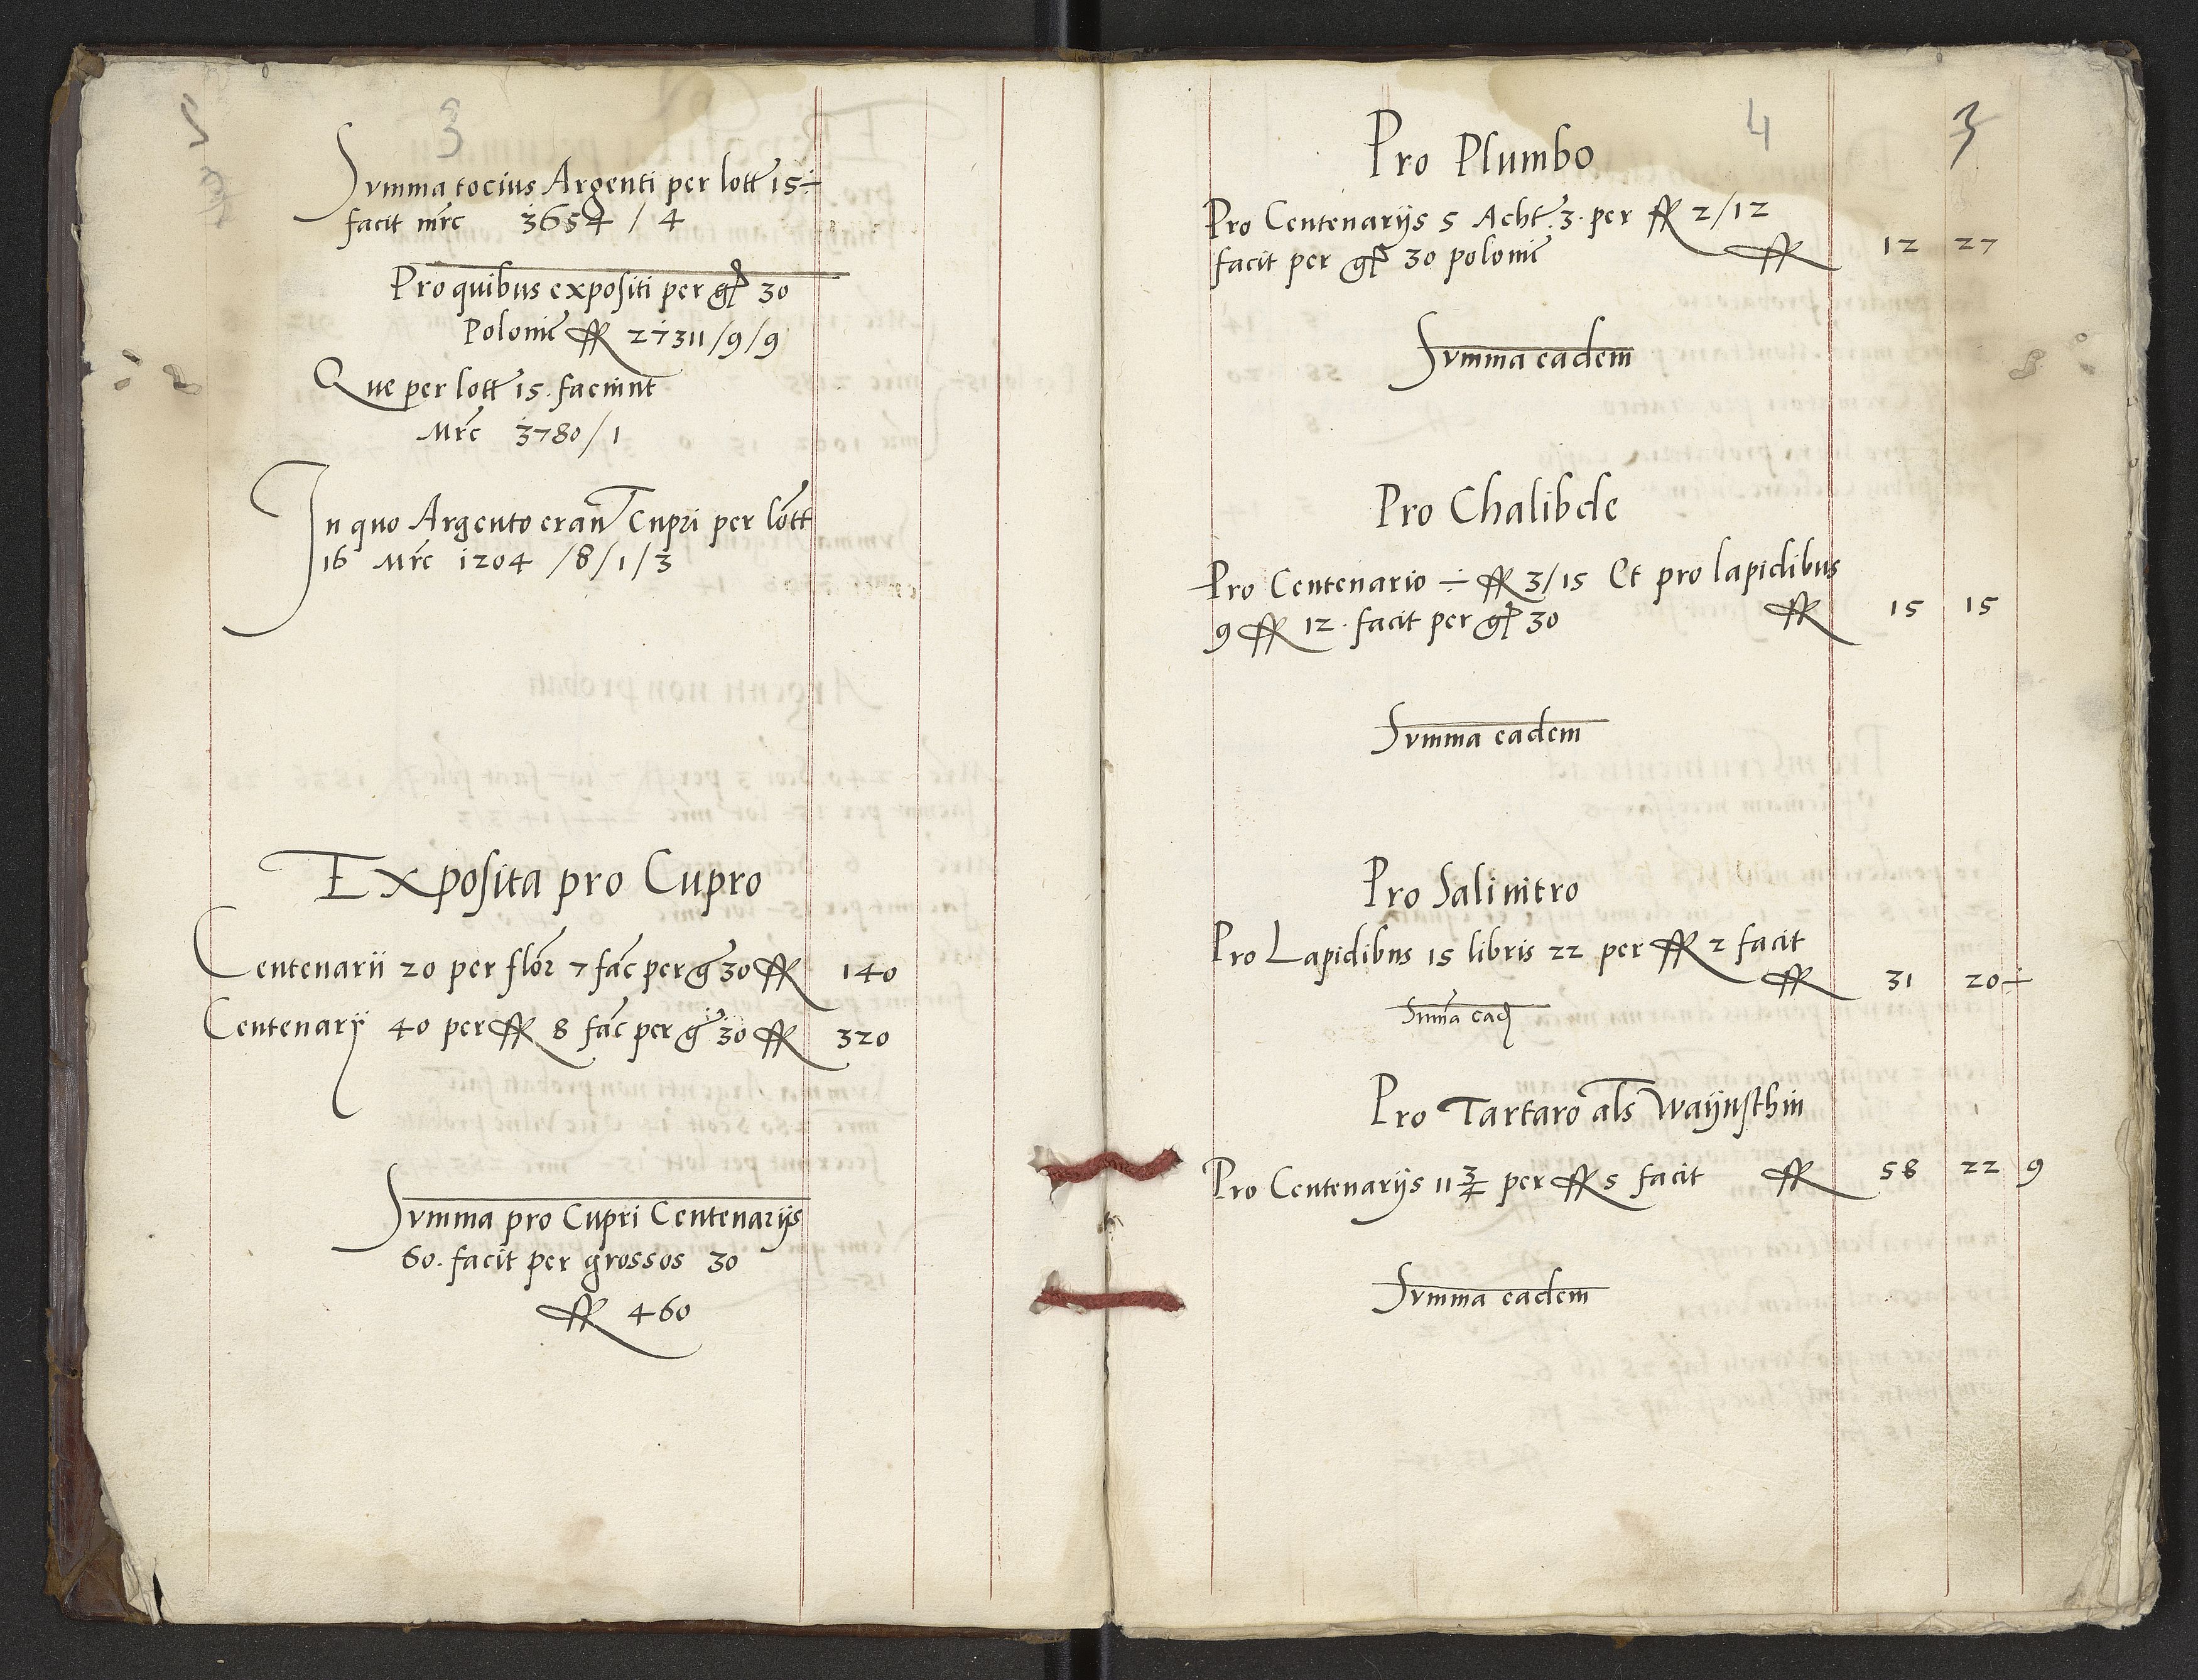 3
Summa tocius Argenti per lott 15 ÷
facit mrc 3654 / 4
Pro quibus expositi per gr 30
Polonic ff 27311/9/9
Que per lott 15. faciunt
Mrc 3780/1
In quo Argento erant Cupri per lott
16 Mrc 1204 /8/1/3
Exposita pro Cupro
Centenarii 20 per flor 7 fac per g 30 ff 140
Centenarij 40 per ff 8 fac per g 30 ff 320
Summa pro Cupri Centenarijs
60. facit per grossos 30
ff 460
4 3
Pro Plumbo
Pro Centenarijs 5 Acht. 3. per ff 2/12
facit per gr 30 polonic ff 12 27
Summa eadem
Pro Chalibde
Pro Centenario ÷ ff 3/15 Et pro lapidibus
9 ff 12. facit per gr 30 ff 15 15
Summa eadem
Pro Salinitro
Pro Lapidibus 15 libris 22 per ff 2 facit
ff 31 20 ÷
Summa ead
Pro Tartaro als Waijnsthin
Pro Centenarijs 11 3/4 per ff 5 facit ff 58 22 9
Summa eadem